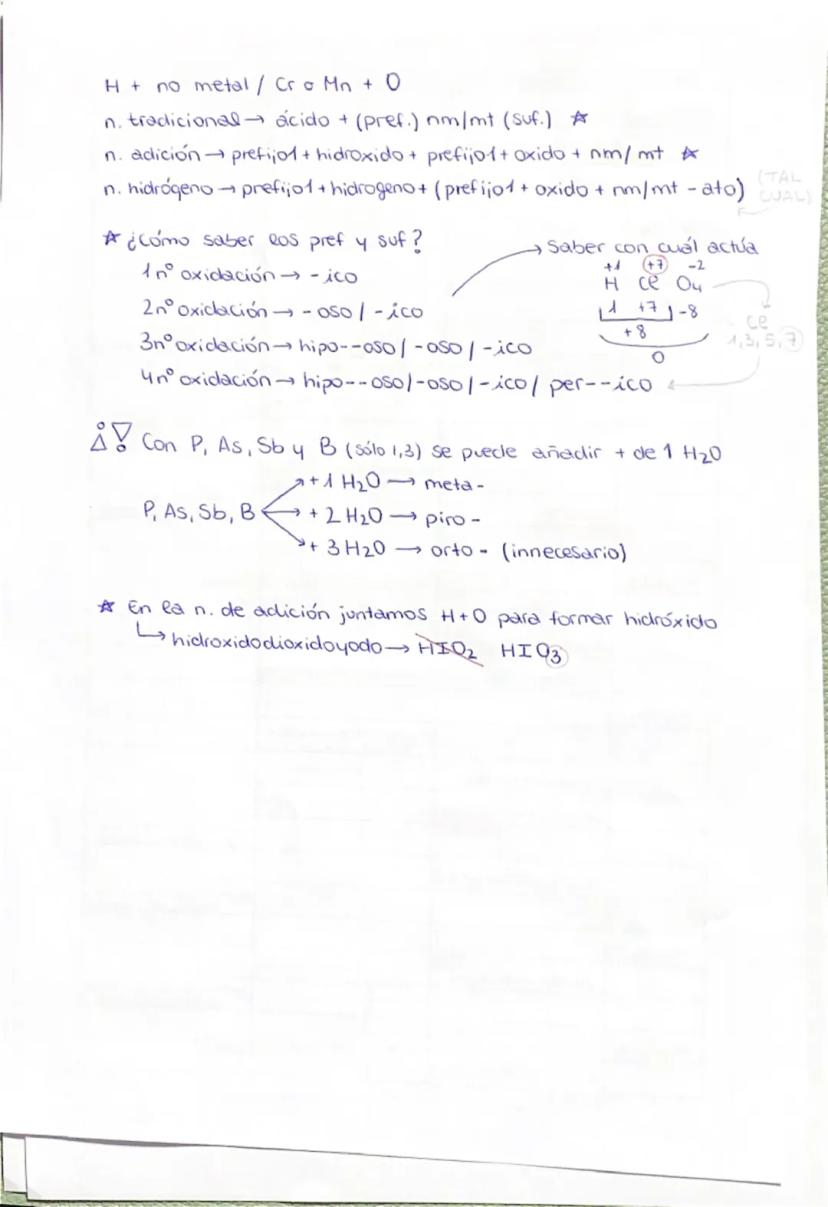 H + no metal / Cr o Mn + O
n. tradicional → ácido + (pref.) nm/mt (suf.) ☆
n. adición → prefijo1 + hidroxido + prefijo1 + oxido + nm/mt ☆
n. hidrógeno → prefijo1 + hidrogeno + (prefijo1 + oxido + nm/mt - ato) (TAL CUAL)
☆ ¿Cómo saber los pref y suf?
1 nº oxidación → -ico
2 nº oxidación → -oso / -ico
3 nº oxidación → hipo--oso / -oso / -ico
4 nº oxidación → hipo--oso / -oso / -ico / per--ico
→ Saber con cuál actúa
+1 +7 -2
H Cl O4
1 +7 -8
+8
0
Cl
1, 3, 5, 7
¡! Con P, As, Sb y B (sólo 1,3) se puede añadir + de 1 H2O
P, As, Sb, B
+ 1 H2O → meta-
+ 2 H2O → piro-
+ 3 H2O → orto- (innecesario)
☆ En la n. de adición juntamos H+O para formar hidróxido
↳ hidroxidodioxidoyodo → HIO2 HIO3